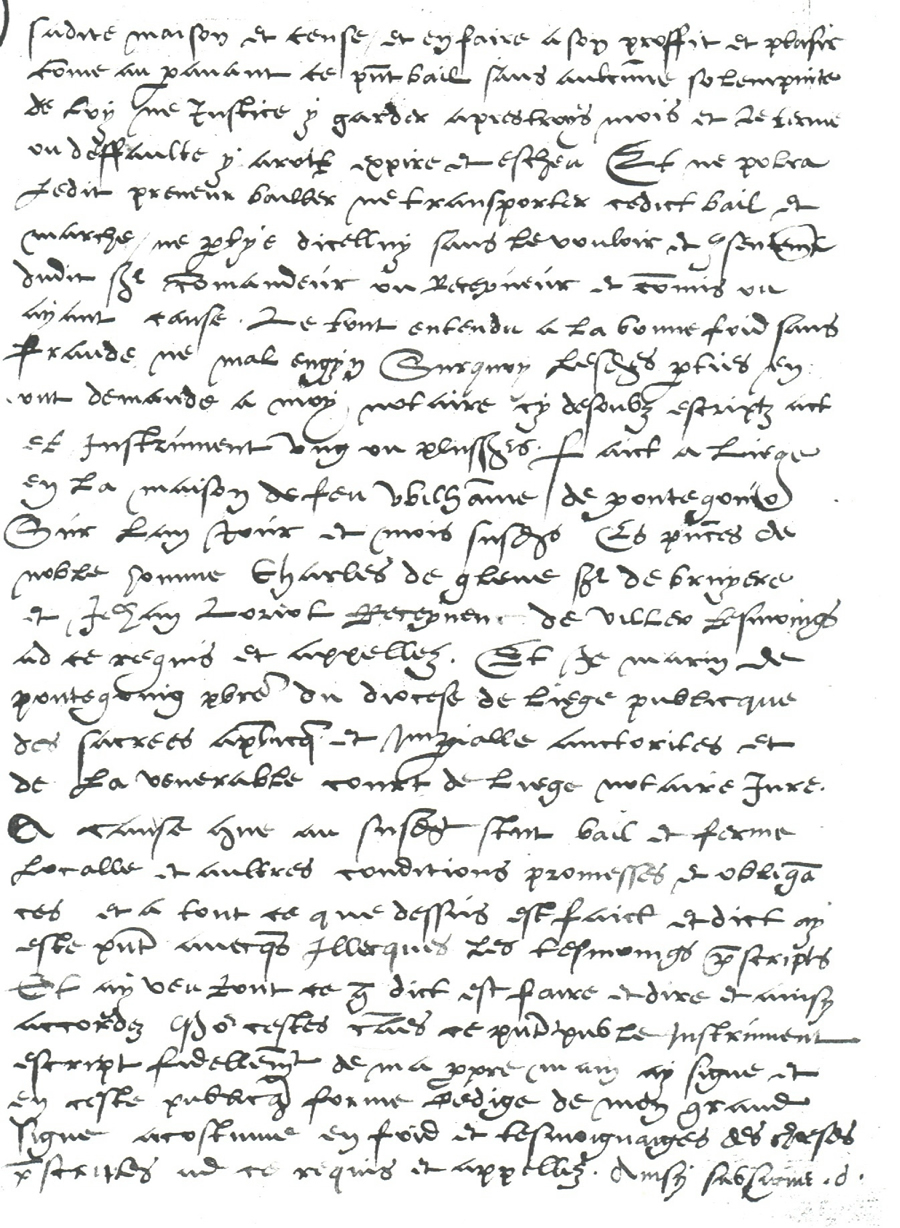 sadite maison et cense et en faire a son proffit et plasir
come au pavant ce pnt bail sans aulcune solempnite
de loy ne Justice y garder apres troys mois et le terme
ou deffaulte y avoir expire et escheu Et ne polra
Ledit preneur bailler ne transporter cedict bail et
marche ne ptye dicelluy sans le vouloir et 9sentemt
dudit sr comandeur ou Recepveur et comis ou
ayant cause . Le tout entendu a la bonne foid sans
fraude ne mal engyn Surquoy Lesds pties en
ont demande a moy notaire cy desoubz escriptz act
et Instrument ung ou pluss̄rs . faict a Liege
en la maison de feu de pontegonio
Sur lan Jour et mois susds Es pnces de
noble homme Charles de gleme sr de bruyere
et Jehan Loriol Recepveur de viller tesmoings
ad ce requis et appellez . Et Je marin de
pontegonig pbre du diocese de liege publicque
des sacrees aplicq et Impialle auctorites et
de la venerable court de liege notaire Jure .
A cause que au susdt stut bail et ferme
Localle et aultres conditions promesses et obliga
ces et a tout ce que dessus est faict et dict ay
este pnt avecqs Illecques les tesmoings pscripts
Et ay veu tout ce q dict est faire et dire et ainsy
accordez cestes ce pnt puble Instrument
escript fidellemt de ma ppre main ay signe et
en ceste publicq forme Redige de mon grand
signe acostume en foid et tesmoignaiges des choeses
pscriptes ad ce requis et appellez . Ainsy subsigne . d .